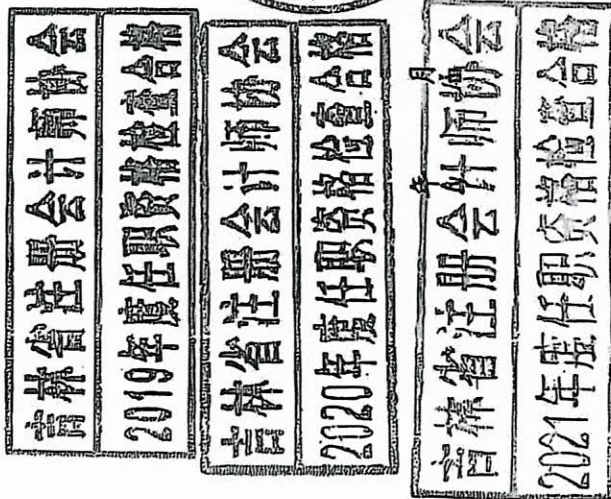 吉林省注册会计师协会
2019年度任职资格检查合格
吉林省注册会计师协会
2020年度任职资格检查合格
年 月
吉林省注册会计师协会
2021年度任职资格检查合格